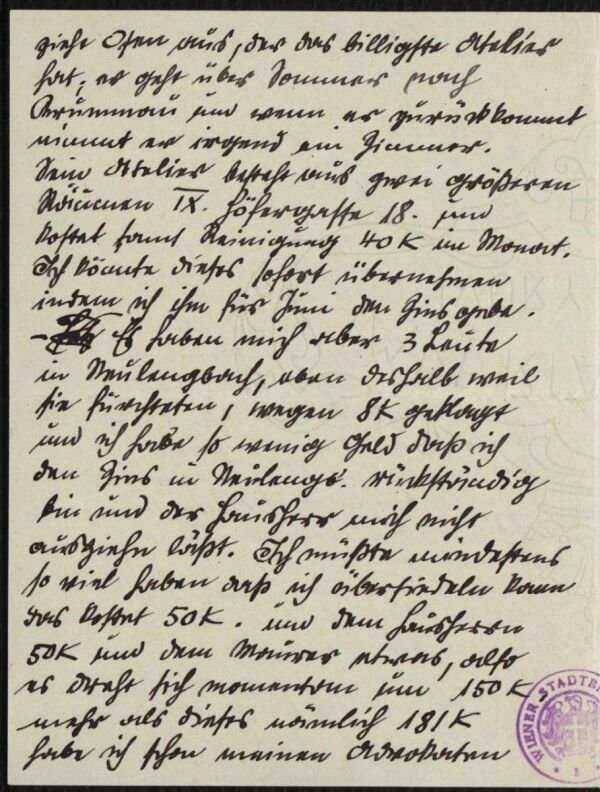 zieht Osen aus, der das billigste Atelier
hat; er geht über Sommer nach
Krummau und wenn er zurückkommt
nimmt er irgend ein Zimmer.
Sein Atelier besteht aus zwei größeren
Räumen IX. Höfergasse 18. und
kostet samt Reinigung 40 K im Monat.
Ich könnte dieses sofort übernehmen
indem ich ihm für Juni den Zins gebe.
– Es haben mich aber 3 Leute
in Neulengbach, eben deshalb weil
sie fürchteten, wegen 8K geklagt
und ich habe so wenig Geld daß ich
den Zins in Neulengb. rückständig
bin und der Hausherr mich nicht
ausziehn läßt. Ich müßte mindestens
so viel haben daß ich übersiedeln kann
das kostet 50K. und dem Hausherrn
50K und dem Maurer etwas, also
es dreht sich momentan um 150 K
mehr als dieses nämlich 181 K
habe ich schon meinen Advokaten
WIENER STADTB